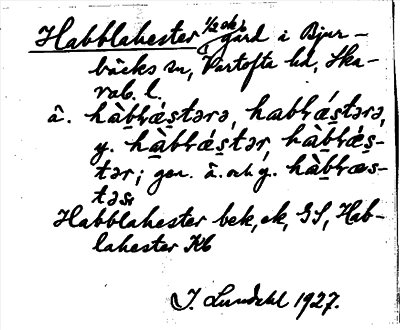 Habblahester 1/2 ok. gård i Bjur-
bäcks sn, Vartofta hd, Ska-
rab. l.
â. hàbḷǽstərə, habḷǽstərə,
y. hàbḷǽstər, hàbḷǽs-
tər; gen. â. och y. hàbḷæs-
təs.
Habblahester bek, ek, GS, Hab-
lahester Kb
J. Lundahl 1927.